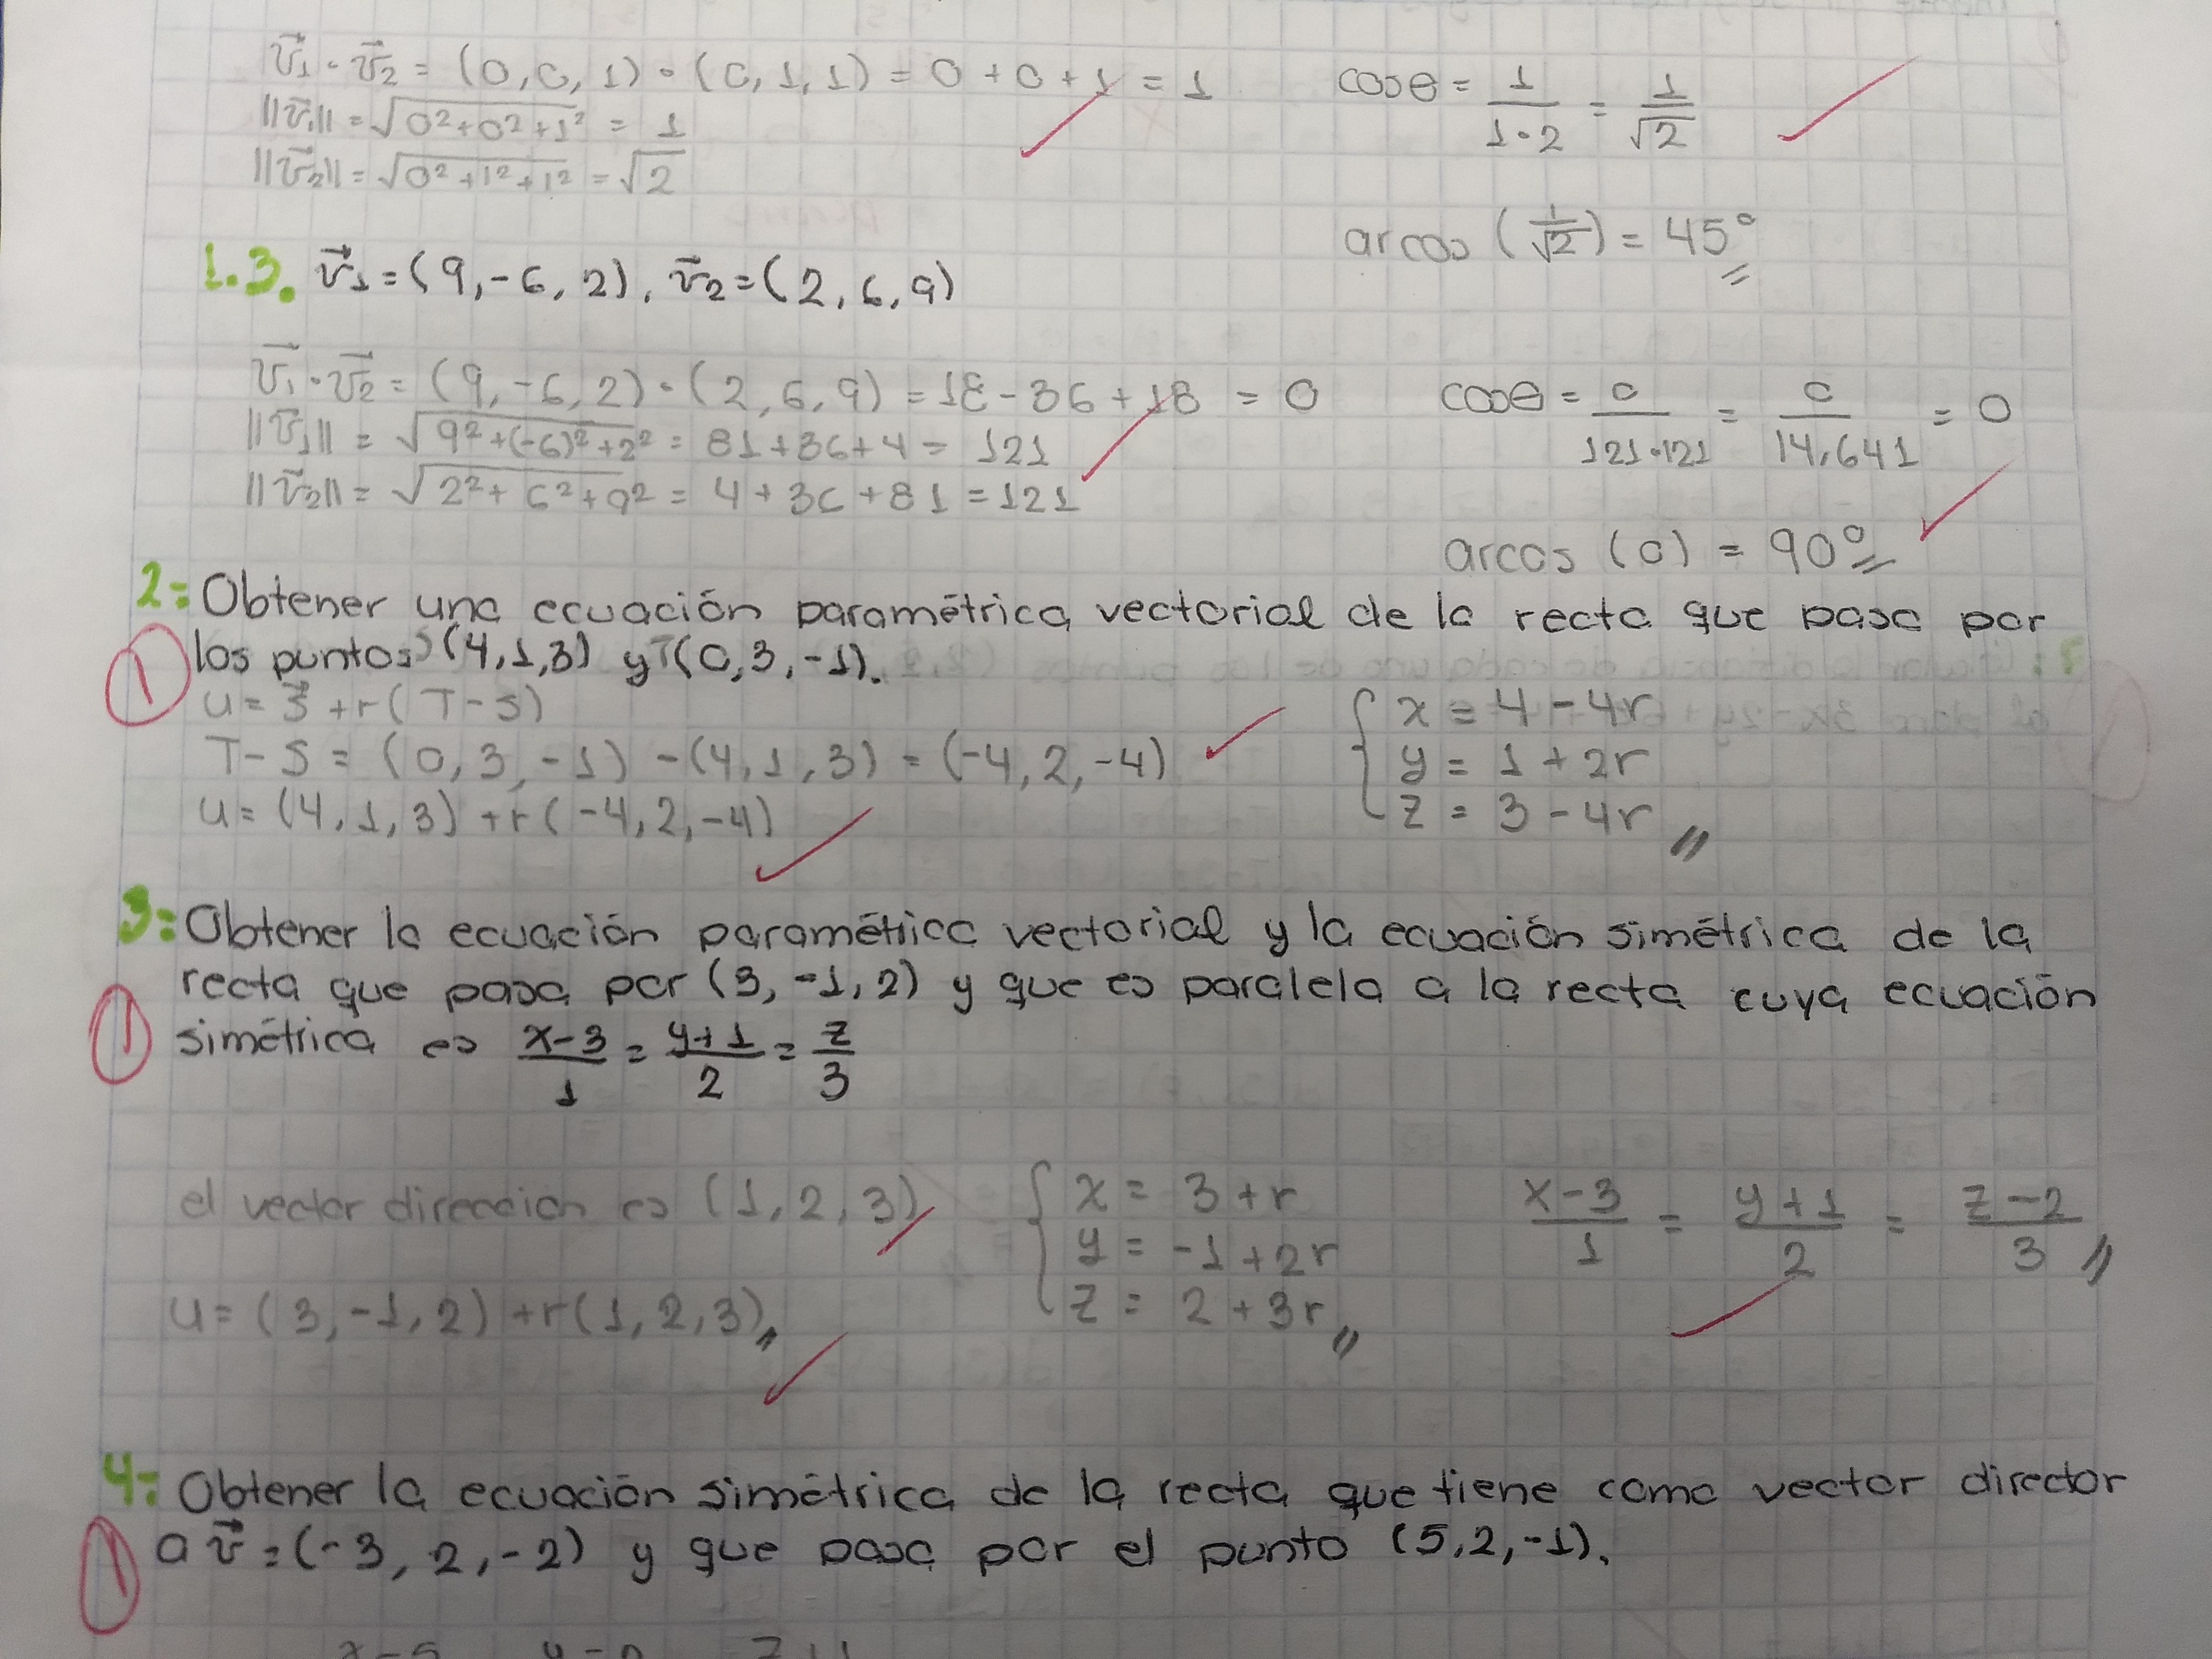 v⃗1 · v⃗2 = (0,0,1) · (0,1,1) = 0 + 0 + 1 = 1
||v⃗1|| = √(0²+0²+1²) = 1
||v⃗2|| = √(0²+1²+1²) = √2
cosθ = 1/(1·2) = 1/√2
arcos (1/√2) = 45°
1.3. v⃗1 = (9,-6,2), v⃗2 = (2,6,9)
v⃗1 · v⃗2 = (9,-6,2) · (2,6,9) = 18 - 36 + 18 = 0
||v⃗1|| = √(9²+(-6)²+2²) = 81+36+4 = 121
||v⃗2|| = √(2²+6²+9²) = 4+36+81 = 121
cosθ = 0/(121·121) = 0/14,641 = 0
arcos (0) = 90°
2: Obtener una ecuación paramétrica vectorial de la recta que pasa por
1 los puntos S(4,1,3) y T(0,3,-1).
u = s⃗ + r(T-S)
T-S = (0,3,-1) - (4,1,3) = (-4,2,-4)
u = (4,1,3) + r(-4,2,-4)
x = 4 - 4r
y = 1 + 2r
z = 3 - 4r
3: Obtener la ecuación paramétrica vectorial y la ecuación simétrica de la
recta que pasa por (3,-1,2) y que es paralela a la recta cuya ecuación
1 simétrica es (x-3)/1 = (y+1)/2 = z/3
el vector direccion es (1,2,3)
u = (3,-1,2) + r(1,2,3)
x = 3 + r
y = -1 + 2r
z = 2 + 3r
(x-3)/1 = (y+1)/2 = (z-2)/3
4: Obtener la ecuación simétrica de la recta que tiene como vector director
1 a v⃗ = (-3, 2, -2) y que pasa por el punto (5,2,-1).